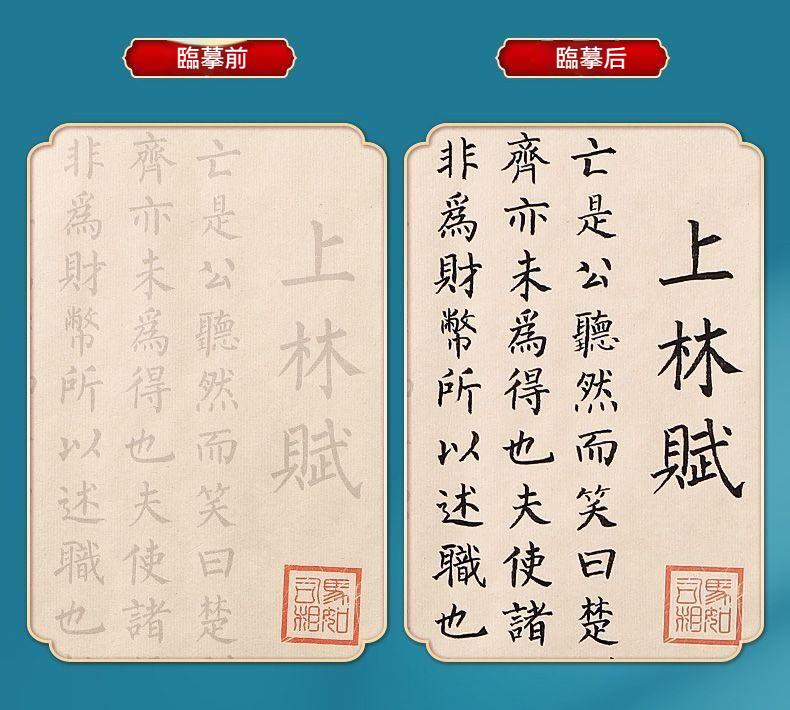 臨摹前
上林賦
亡是公聽然而笑曰楚
齊亦未為得也夫使諸
非為財幣所以述職也
司馬相如
臨摹后
上林賦
亡是公聽然而笑曰楚
齊亦未為得也夫使諸
非為財幣所以述職也
司馬相如